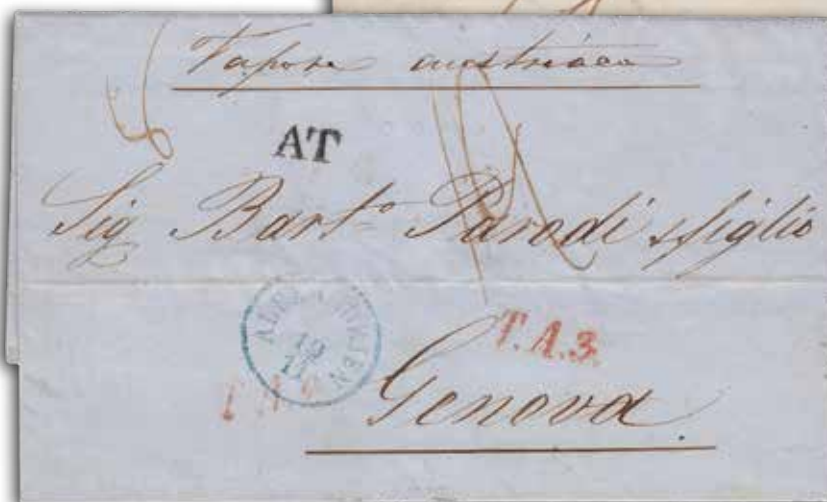 Vapore austriaco
AT
Sig Bart.o Parodi e figlio
ALEXANDRIEN
T.A.3.
Genova